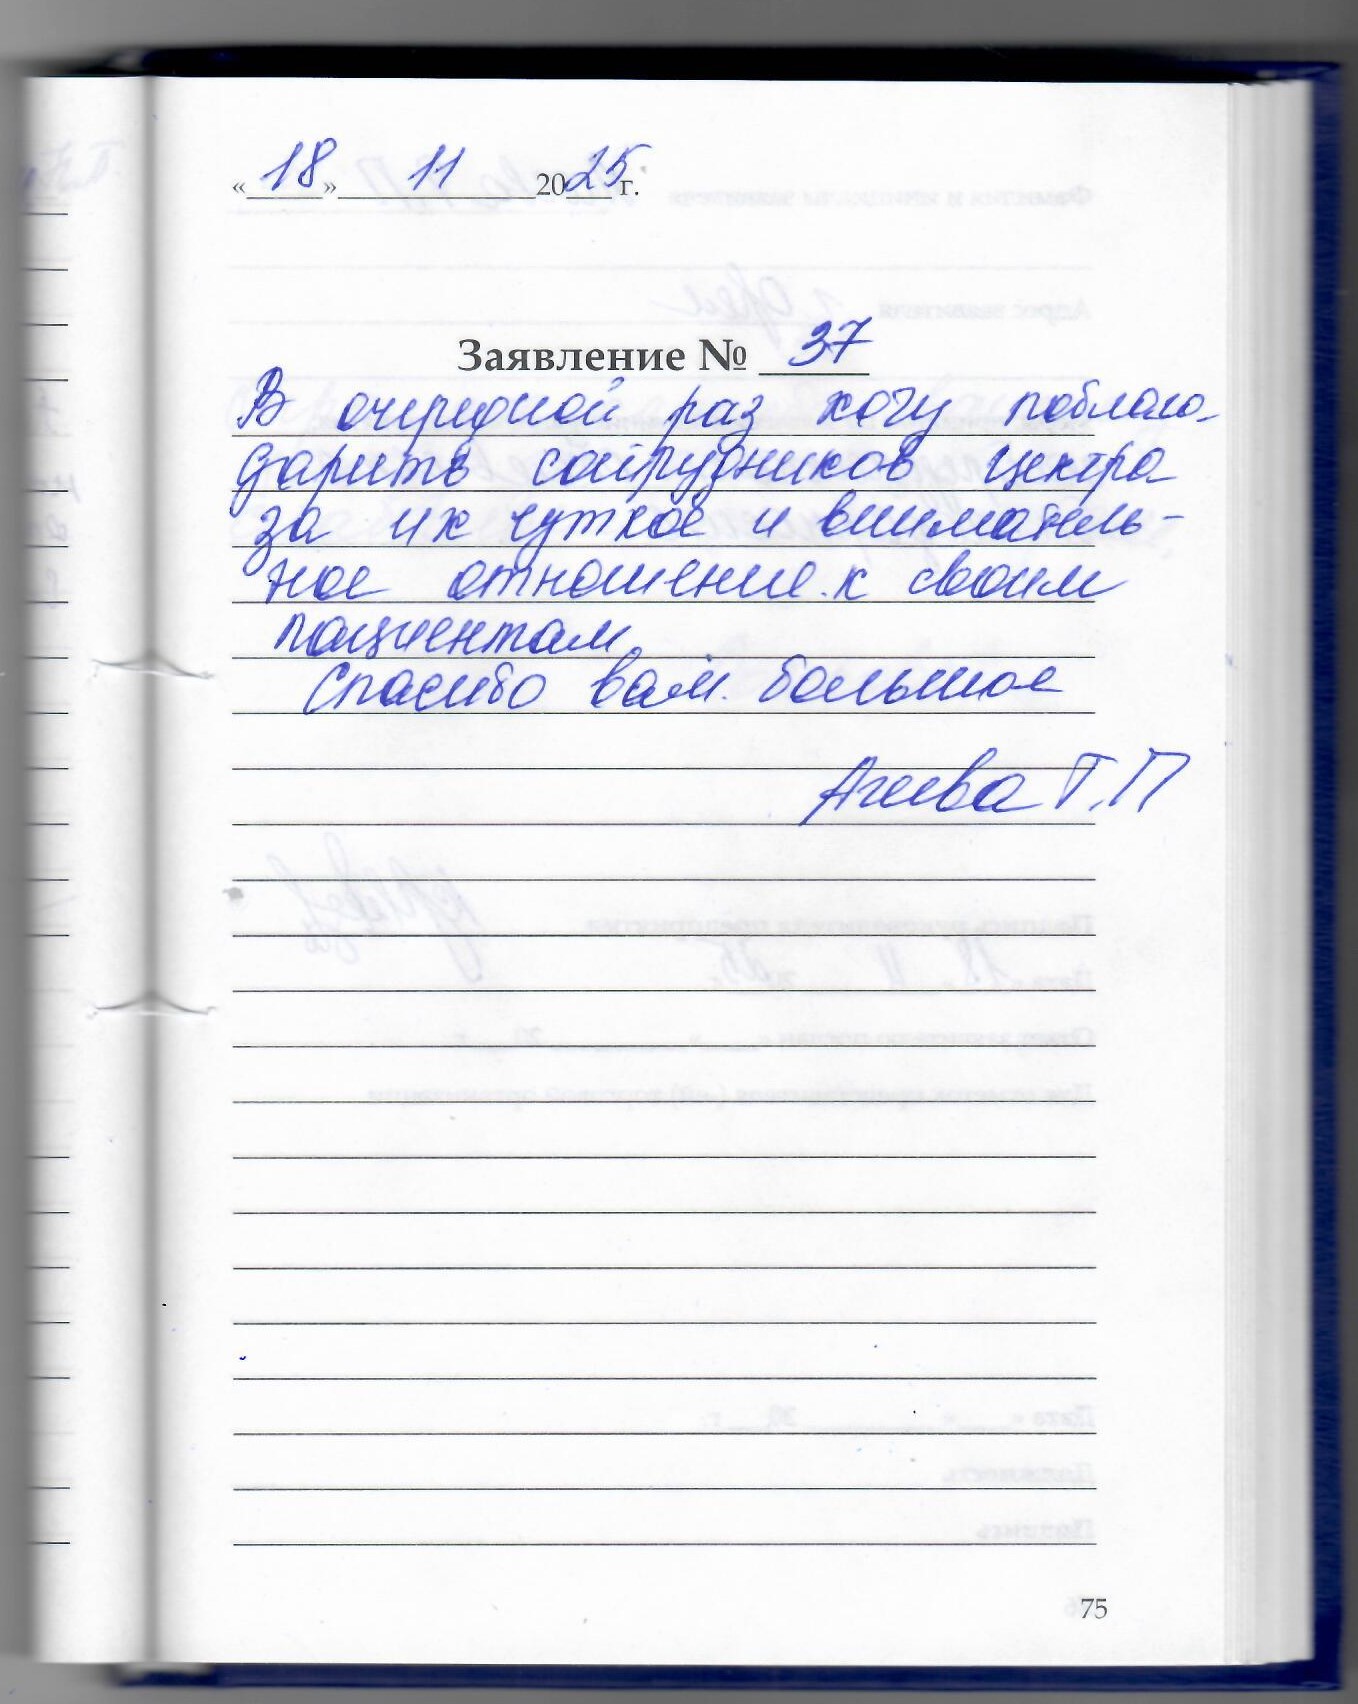 «18» 11 2025 г.
Заявление № 37
В очередной раз хочу поблаго-
дарить сотрудников центра
за их чуткое и вниматель-
ное отношение к своим
пациентам.
Спасибо вам большое
Агеева Т.П
75